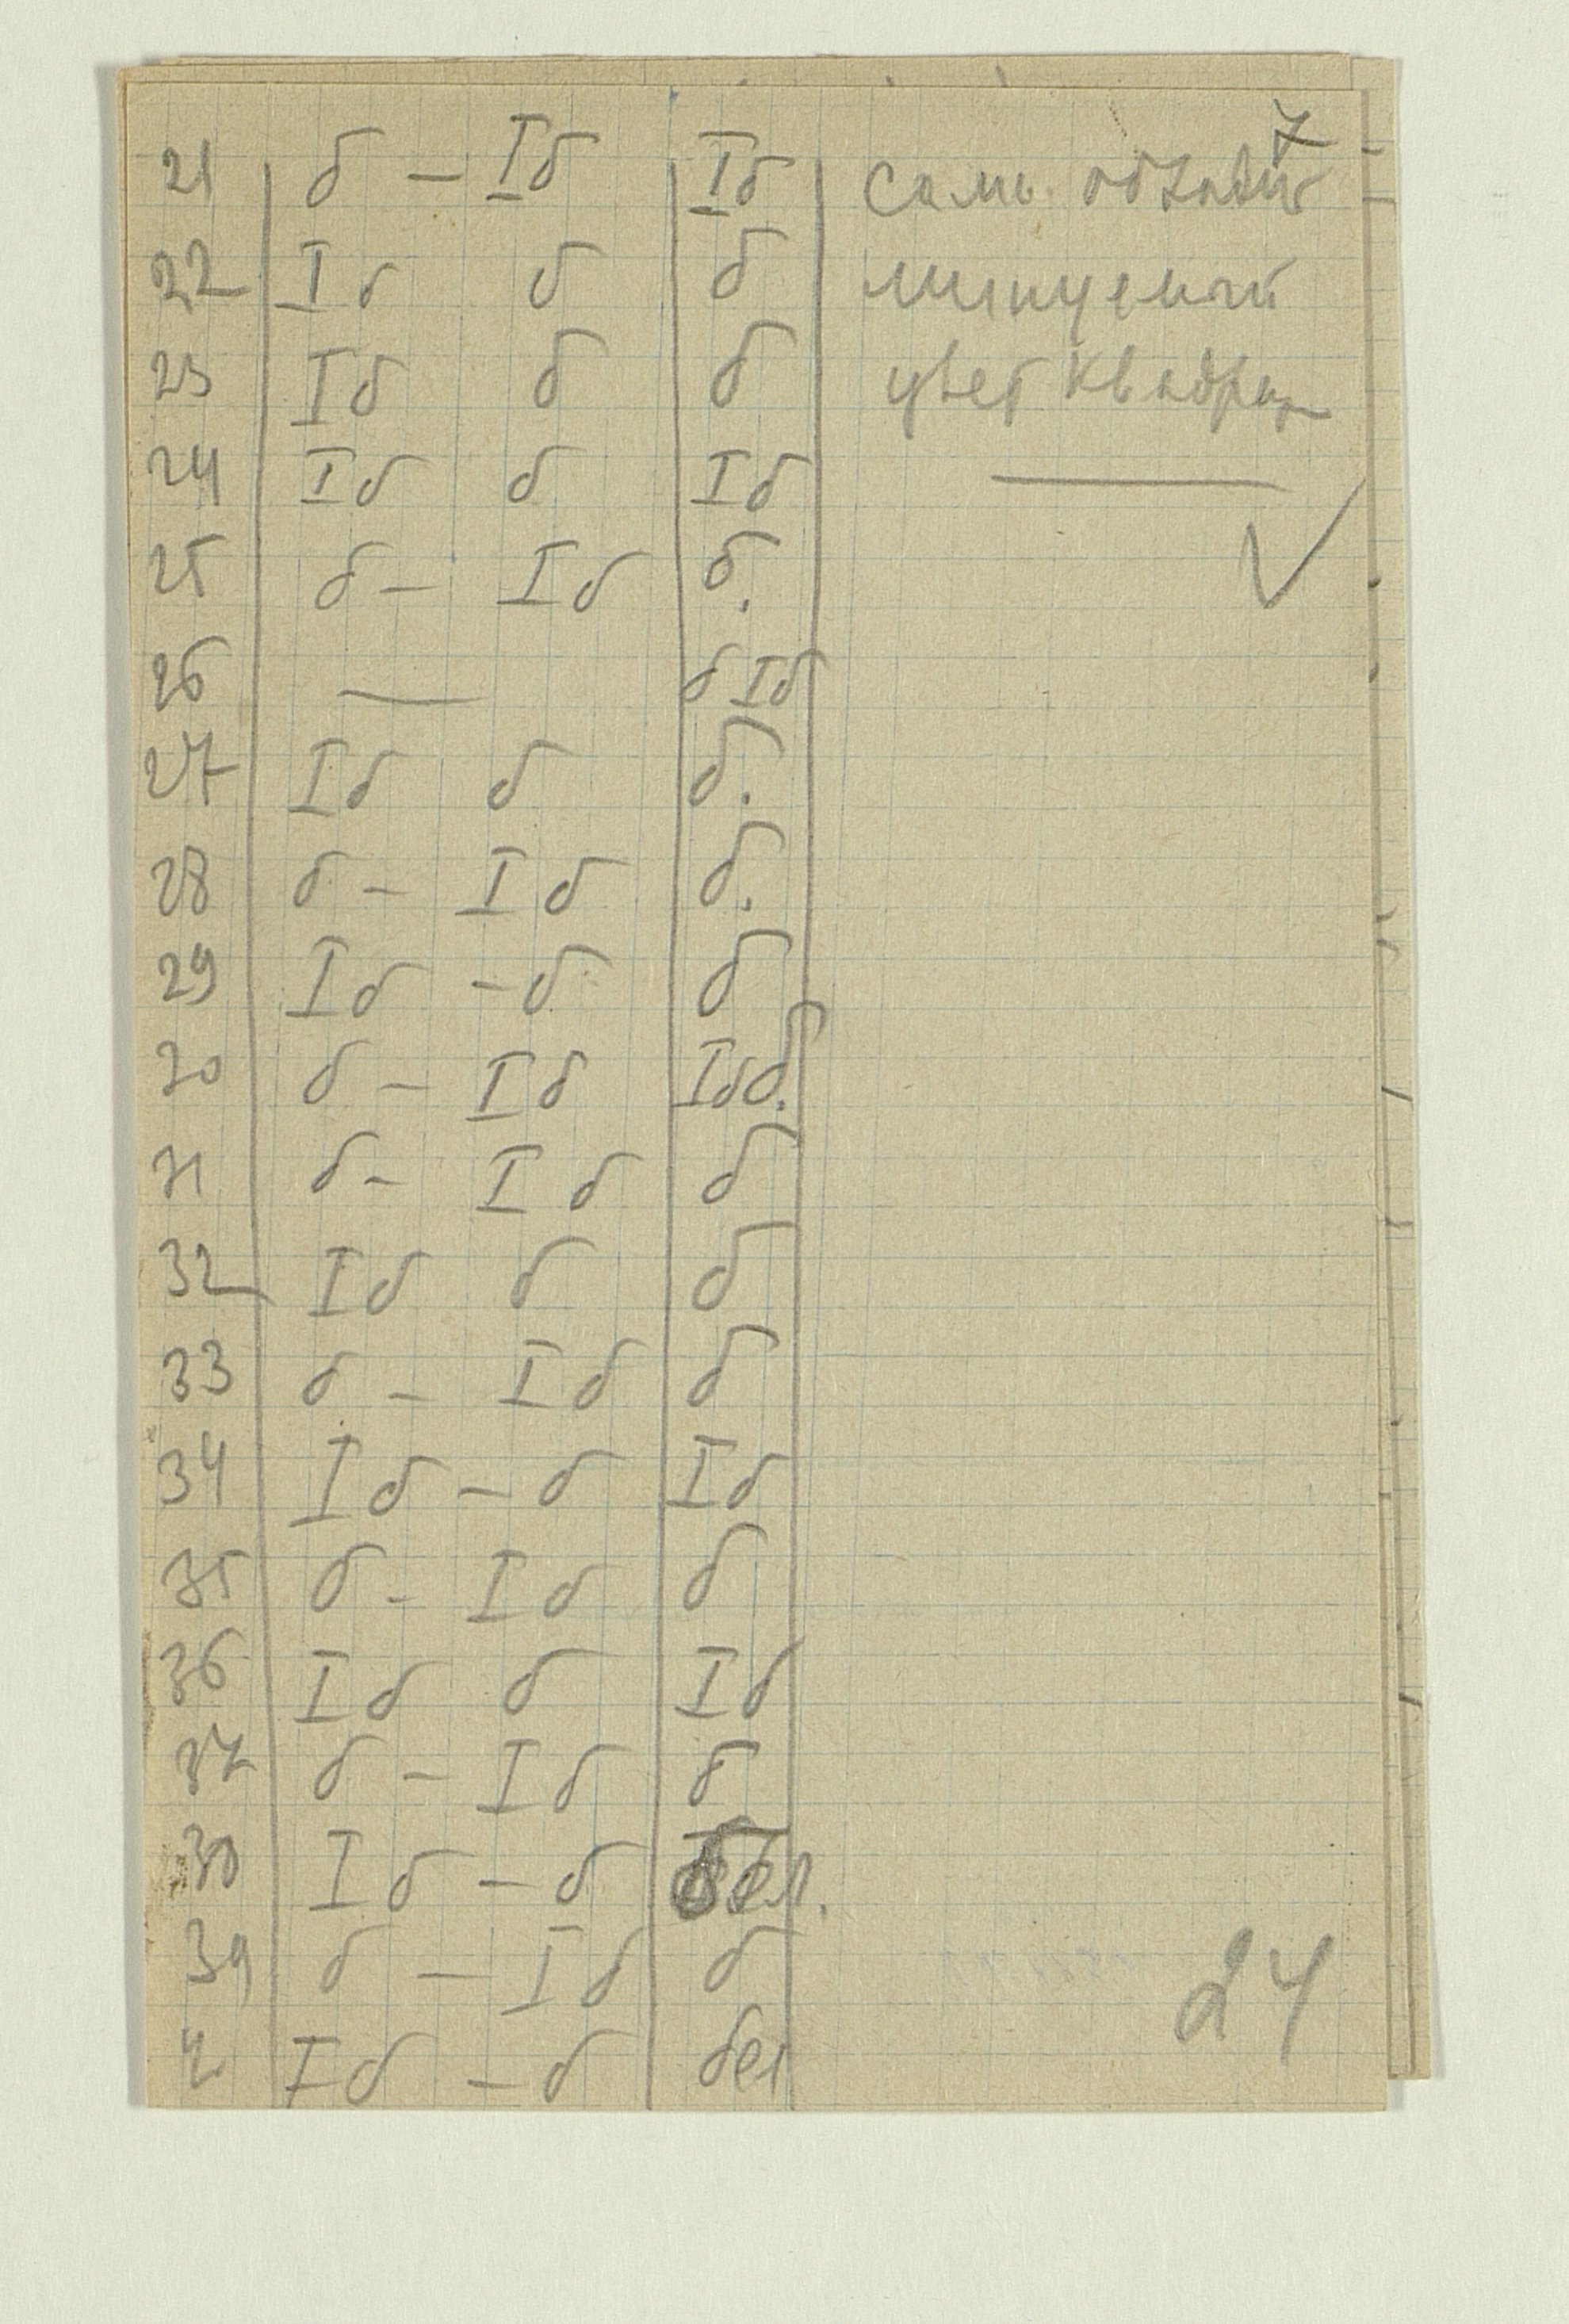 7
21 б – Iб Iб
22 Iб б б
23 Iб б б цвет квадра
24 Iб б Iб
25 б – Iб б.
26 — б Iб
27 Iб б б.
28 б – Iб б.
29 Iб – б б
30 б – Iб Iб б.
31 б – Iб б
32 Iб б б
33 б – Iб б
34 Iб – б Iб
35 б – Iб б
36 Iб б Iб
37 б – Iб б
38 Iб – б бел.
39 б – Iб б
Iб – б бел
24